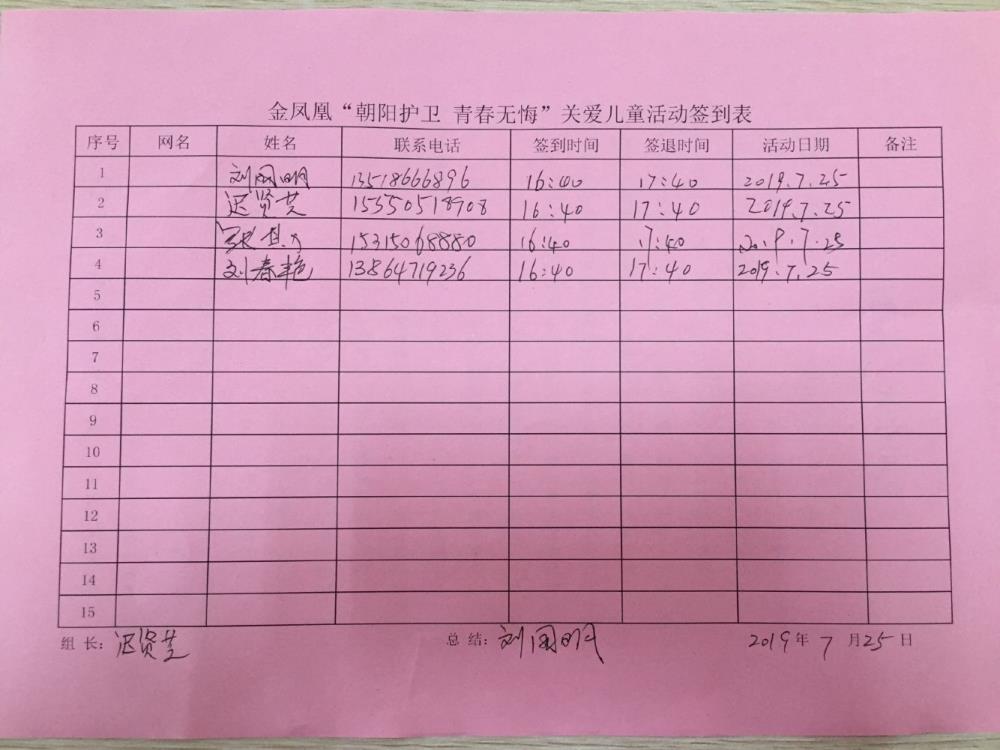 金凤凰“朝阳护卫 青春无悔”关爱儿童活动签到表
序号 网名 姓名 联系电话 签到时间 签退时间 活动日期 备注
1 刘 明 13518666896 16:40 17:40 2019.7.25
2 迟贤芝 15550518908 16:40 17:40 2019.7.25
3 15315068880 16:40 17:40 2019.7.25
4 刘春艳 13864719236 16:40 17:40 2019.7.25
5
6
7
8
9
10
11
12
13
14
15
组长: 迟贤芝 总结: 刘 明 2019年7月25日